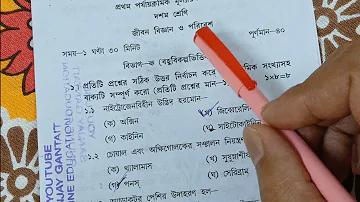 প্রথম পর্যায়ক্রমিক
দশম শ্রেণি
জীবন বিজ্ঞান ও পরিবেশ
সময়—১ ঘণ্টা ৩০ মিনিট
পূর্ণমান—৪০
বিভাগ—ক (বহুবিকল্পভিত্তিক
১ প্রতিটি প্রশ্নের সঠিক উত্তর নির্বাচন করে ক্রমিক সংখ্যাসহ
বাক্যটি সম্পূর্ণ করো (প্রতিটি প্রশ্নের মান—১ ১×৮=৮
১.১ নাইট্রোজেনবিহীন উদ্ভিদ হরমোন—
(ক) অক্সিন
জিব্বেরেলিন
(গ) কাইনিন
সাইটোকাইনিন
১.২ চোয়াল এবং অক্ষিগোলকের সঞ্চালন নিয়ন্ত্রণ
(ক) থ্যালামাস
(খ)
(গ) পনস্
(ঘ) সেরিব্রাম
পেশির উদাহরণ হল—
YOUTUBE